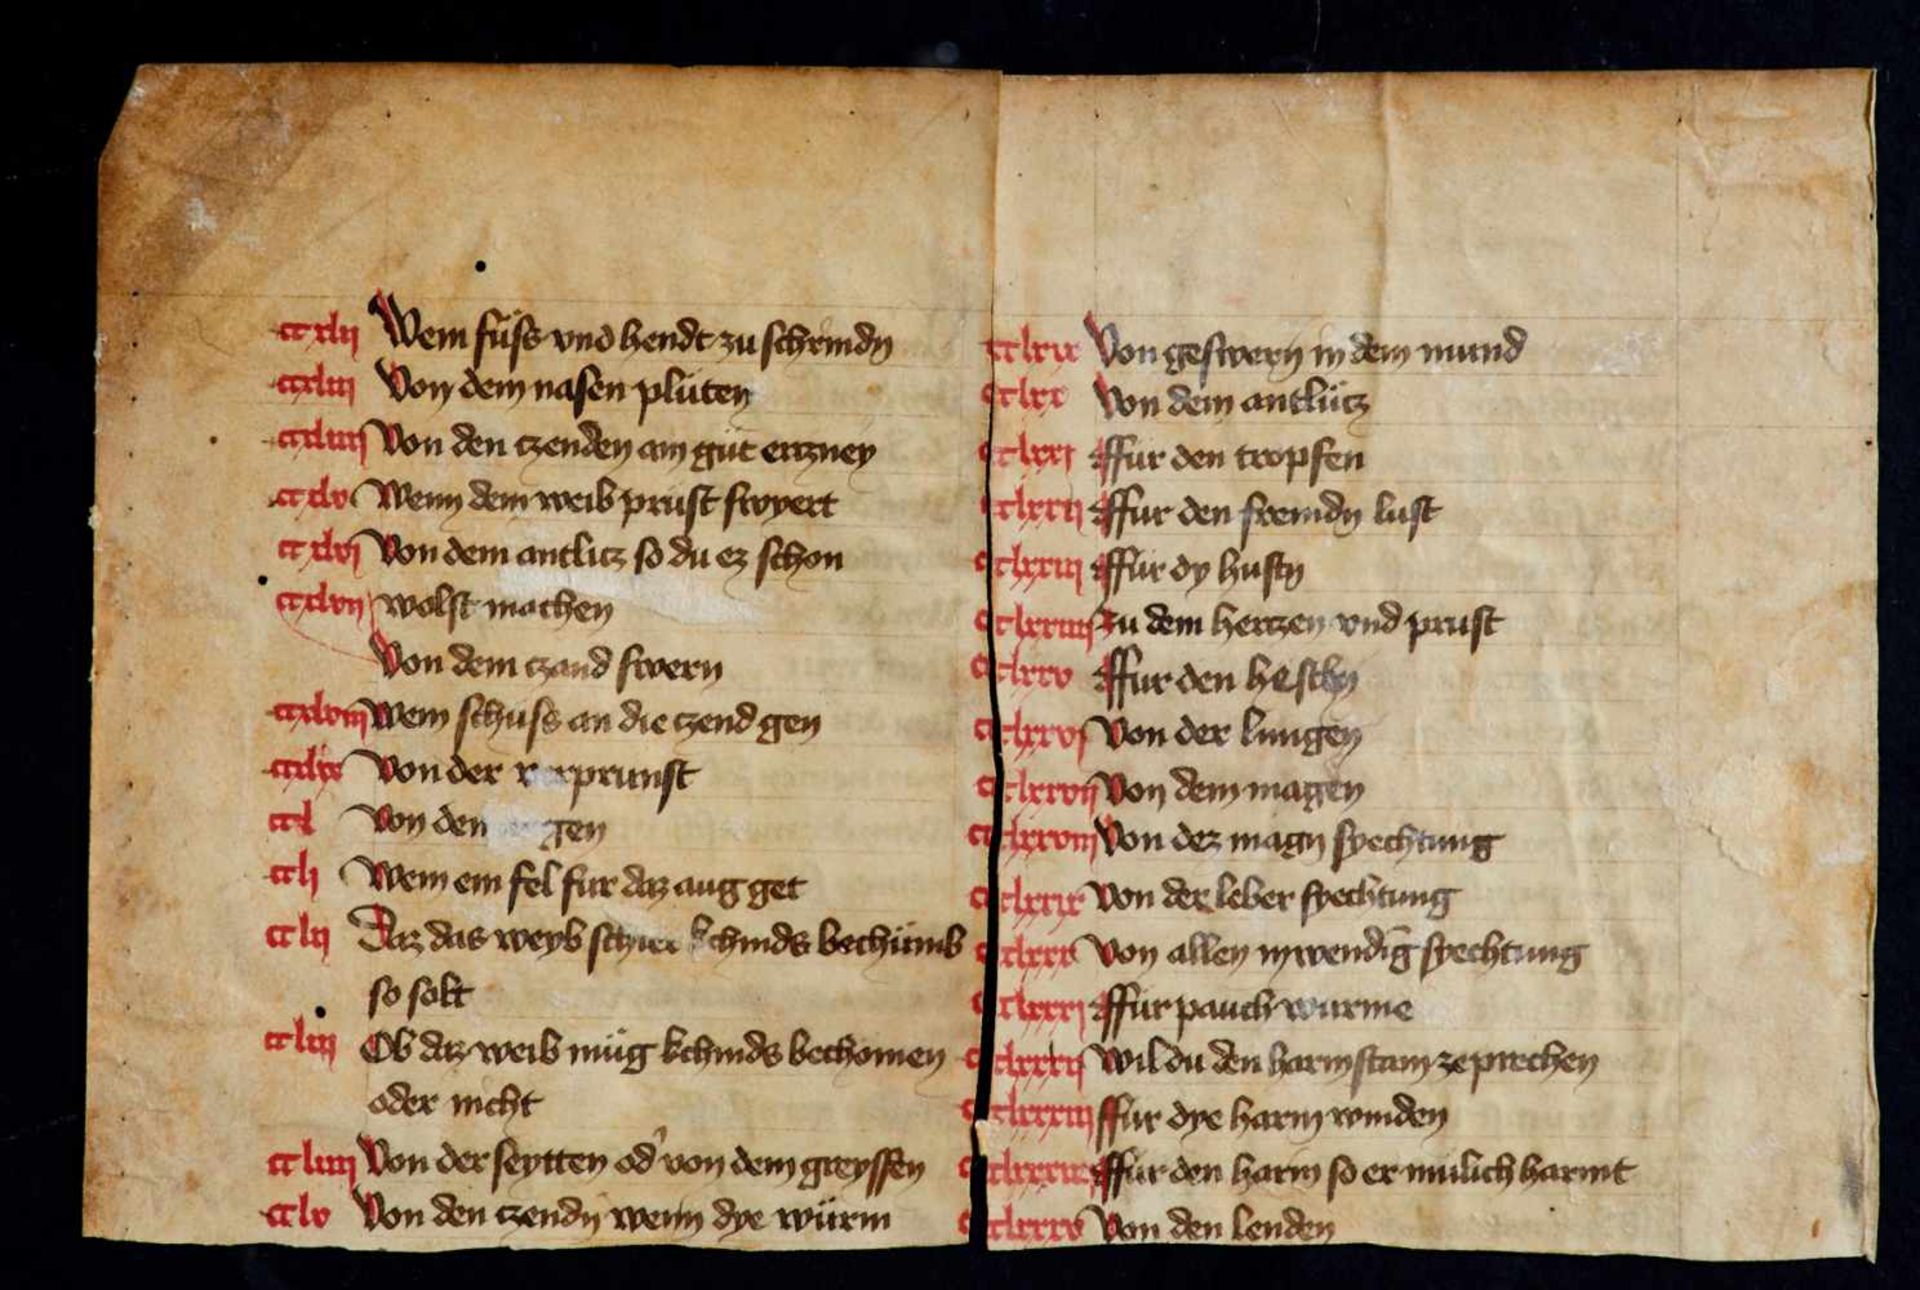 ccxlij Wem füss vnd hendt zu schrindn
ccxliij Von dem nasen plüten
ccxliiij Von den czenden ain güt erczney
ccxlv Wenn dem weib prust swyert
ccxlvj Von dem antlicz so du ez schon
ccxlvij wolst machen
Von dem czand swern
ccxlviij Wem schuss an die czend gen
ccxlix Von der prunst
ccl Von den
cclj Wem ein fel fur daz aug get
cclij Daz das weyb schier kchinds bechümb
so solt
ccliij Ob daz weib müg kchinds bechomen
oder nicht
ccliiij Von der seytten od' von dem greyffen
cclv Von den czendn wenn dye würm
cclxix Von geswern in dem mund
cclxx Von dem antlücz
cclxxj ffur den tropfen
cclxxij ffur den fremdn lust
cclxxiij ffur dy hustn
cclxxiiij Zu dem herczen vnd prust
cclxxv ffur den heschn
cclxxvj Von der lungen
cclxxvij Von dem magen
cclxxviij Von dez magn syechtung
cclxxix Von der leber syechtung
cclxxx Von allen inwendiḡ syechtung
cclxxxj ffur pauch wurme
cclxxxij Wildu den harmstain zeprechen
cclxxxiij ffur dye harm winden
cclxxxiiij ffur den harm so er mülich harmt
cclxxxv Von den lenden